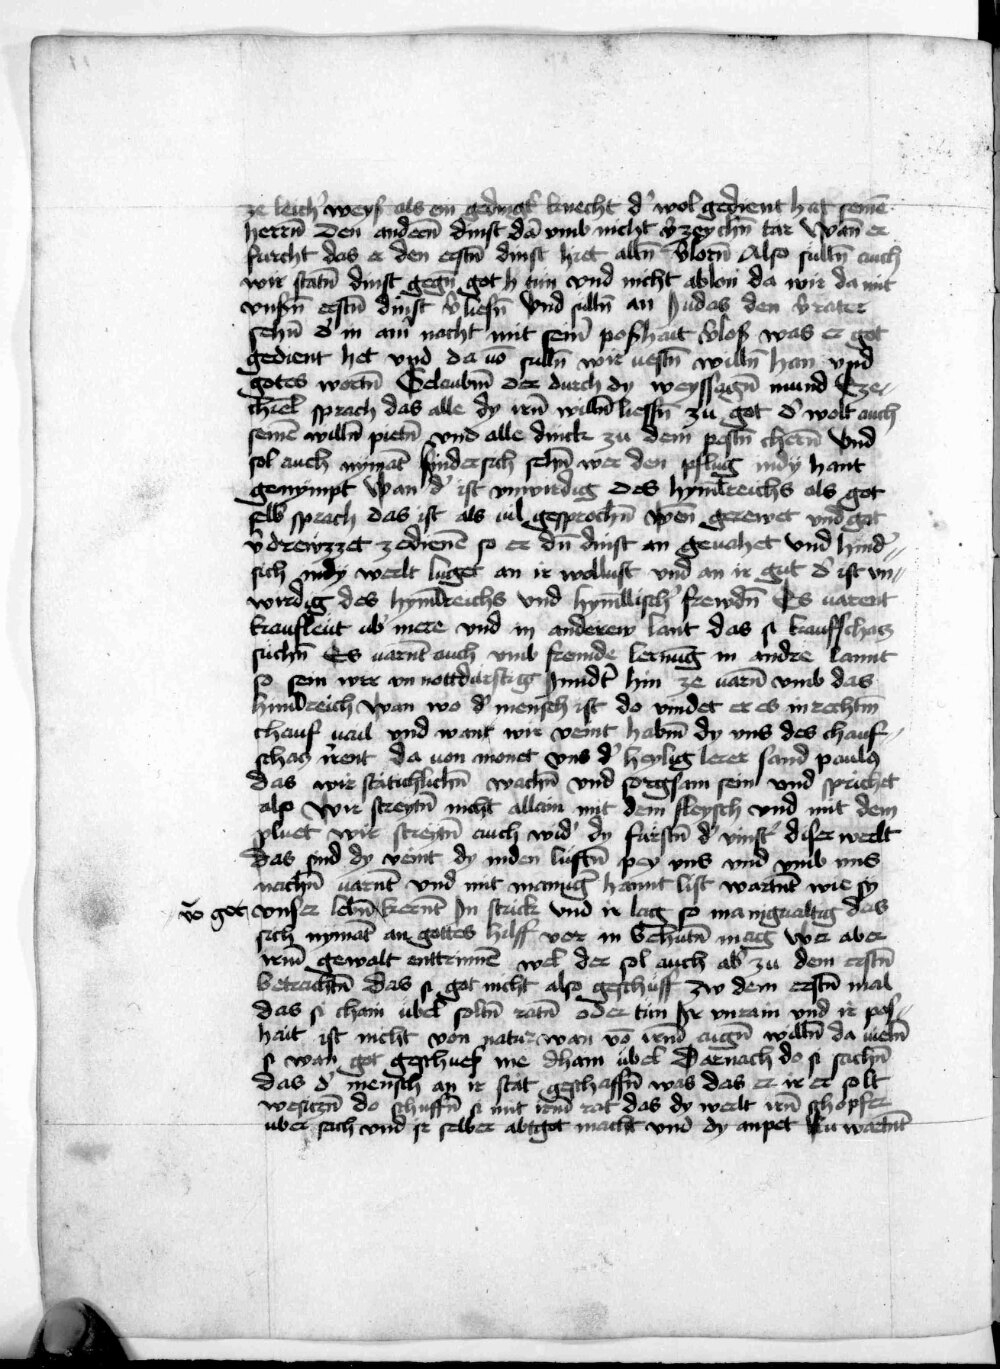 ze leich' weyſ als ein gedingt' knecht d' wol gedient hat seinē
herrn̄ Den andern̄ dinst dā vmb nicht v̄zeychn̄ tar Wan er
furcht das er den erstn̄ dinst hiet alln̄ v̄lorn̄ Also sulln̄ auch
wir statn̄ dinst gegn̄ got h tün vnd nicht ablon da wir da mit
vnsn̄ erstn̄ dinst v̄liesn̄ Vnd sulln̄ an Judas den v̄rater
sehn̄ d' in ain̄ nacht mit sein̄ poſhait v̄loſ was er got
gedient het vnd da vō sulln̄ wir vestn̄ willn̄ han vnd
gotes wortn̄ Gelaubn̄ der durch dy weyssagn̄ mund Eze-
chiel sprach das alle dy irn̄ willn̄ liessn̄ zu got d' wolt auch
seinē willn̄ pietn̄ vnd alle dinck zu dem pestn̄ chern̄ Vnd
sol auch nymāt hindersich sehn̄ wer den pflug indy hant
genympt Wan d' ist vnwirdig des hymelreichs als got
selb sprach das ist als vil gesprochn̄ Wen̄ gerewet vnd got
v̄drewzzet zedienē so er dn̄ dinst an geuahet vnd hind'-
sich indy werlt luget an ir wollust vnd an ir gut d' ist vn-
wirdig des hym̄lreichs vnd hym̄llisch' frewdn̄ Es varent
kaufleut vb' mere vnd in anderew lant das si kauffschaz
suchn̄ Es varnt auch vmb fremde lernūg in andre lannt
so sein wir vn nottdürftig hindt' hin ze varn̄ vmb das
himelreich Wan wo d' mensch ist do vindet er es in rechtn̄
chauf vail vnd want wir veint habn̄ dy vns des chauf-
schaz irent da von monet vns d' heylig lerer sand paul9
das wir stätichlichn̄ wachn̄ vnd sorgsam sein vnd sprichet
also Wir streytn̄ nicht allain mit dem fleysch vnd mit dem
pluet wir streytn̄ auch wid' dy fürstn̄ d' vinst' diser werlt
Das sind dy veint dy inden lüftn̄ pey vns vnd vmb uns
nachn̄ varnt vnd mit manigē hannt list wartnt wie sy
vō got vnser lebn̄ kernt In strick vnd ir lag so manigualtig das
sich nymāt an gottes hilff vor in behutn̄ mag Wer aber
irm̄ gewalt enttrinnē wel der sol auch ab' zu dem erstn̄
betrachtn̄ Das si got nicht also geschuff zw dem erstn̄ mal
das si chain übel soltn̄ ratn̄ oder tün Ir vnrain vnd ir pos-
hait ist nicht von natur wan vō irm̄ aign̄ willn̄ da vieln̄
si wan got geschuef nie dhain übel Darnach do si sachn̄
das d' mensch an ir stat geschaffn̄ was das er ir er solt
wesitzn̄ do schuffn̄ si mit irm̄ rat das dy werlt irn̄ schopfer
uber sach vnd ir selber abtgot macht vnd dy anpet Nu wartnt